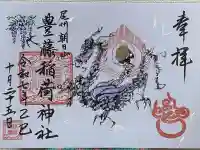 奉拝
尾州 朝日山
豊藤稲荷神社
令和七年乙巳
十月二十五日